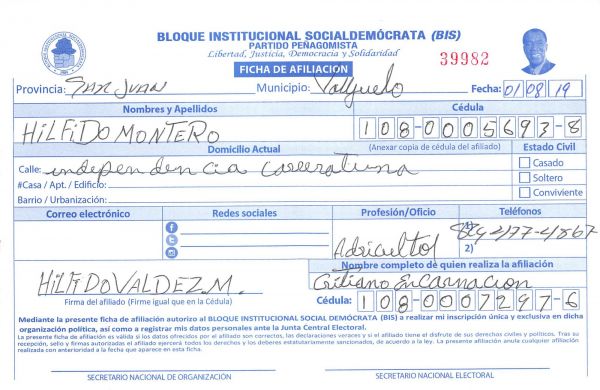 BLOQUE INSTITUCIONAL SOCIALDEMÓCRATA (BIS)
PARTIDO PEÑAGOMISTA
Libertad, Justicia, Democracia y Solidaridad
39982
FICHA DE AFILIACIÓN
Provincia: San Juan Municipio: Vallejuelo Fecha: 01/08/19
Nombres y Apellidos Cédula
HiLFiDO MONTERO 108-0005693-8
Domicilio Actual (Anexar copia de cédula del afiliado) Estado Civil
Calle: independencia Casado
#Casa / Apt. / Edificio: Soltero
Barrio / Urbanización: Conviviente
Correo electrónico Redes sociales Profesión/Oficio Teléfonos
1)
Adricultol 2)
Nombre completo de quien realiza la afiliación
HiLFiDO VALDEZ.M. Encarnacion
Firma del afiliado (Firme igual que en la Cédula) Cédula: 108-0007297-6
Mediante la presente ficha de afiliación autorizo al BLOQUE INSTITUCIONAL SOCIAL DEMÓCRATA (BIS) a realizar mi inscripción única y exclusiva en dicha
organización política, así como a registrar mis datos personales ante la Junta Central Electoral.
La presente ficha de afiliación es válida si los datos ofrecidos por el afiliado son correctos, las declaraciones veraces y si el afiliado tiene el disfrute de sus derechos civiles y políticos. Tras su
recepción, sello y firmas autorizadas el afiliado ejercerá todos los derechos y los deberes estatutariamente sancionados, de acuerdo a la ley. La presente afiliación anula cualquier afiliación
realizada con anterioridad a la fecha que aparece en esta ficha.
SECRETARIO NACIONAL DE ORGANIZACIÓN SECRETARIO NACIONAL ELECTORAL